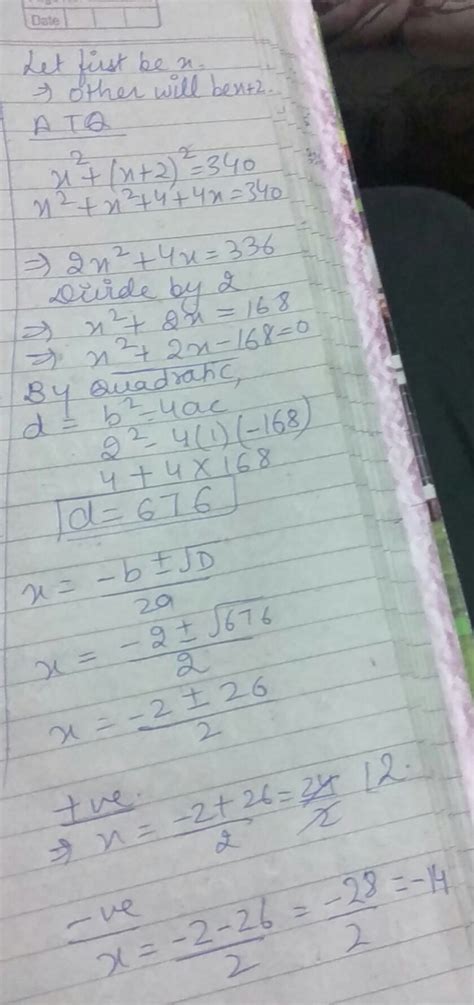 Date
Let first be x.
⇒ other will be x+2.
ATQ
x² + (x+2)² = 340
x² + x² + 4 + 4x = 340
⇒ 2x² + 4x = 336
Divide by 2
⇒ x² + 2x = 168
⇒ x² + 2x - 168 = 0
By Quadratic,
d = b² - 4ac
2² - 4(1)(-168)
4 + 4 × 168
d = 676
x = -b ± √D / 2a
x = -2 ± √676 / 2
x = -2 ± 26 / 2
+ve.
⇒ x = -2 + 26 / 2 = 24 / 2 12.
-ve
x = -2 - 26 / 2 = -28 / 2 = -14